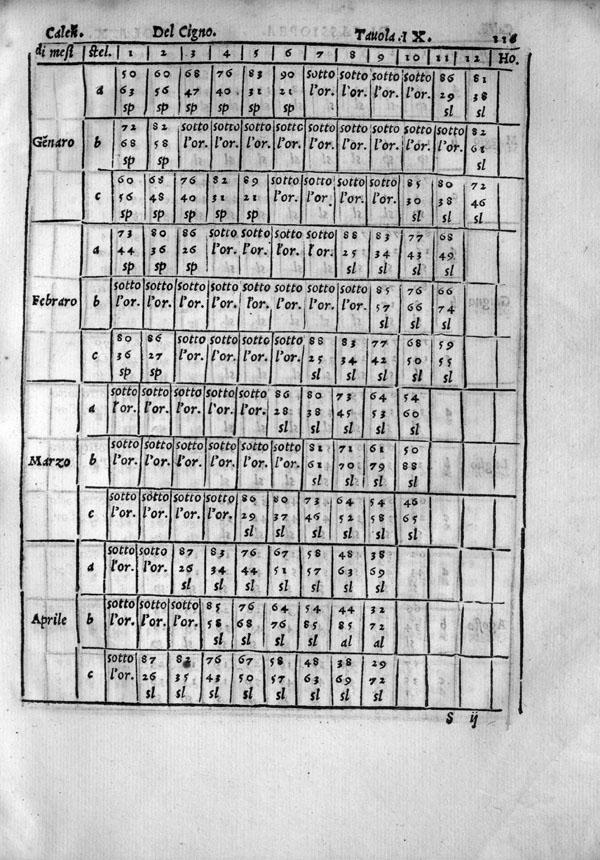 Caleñ. Del Cigno. Tavola IX. 116
di mesi stel. 1 2 3 4 5 6 7 8 9 10 11 12 Ho.
50 60 68 76 83 90 sotto sotto sotto sotto 86 81
a 63 56 47 40 31 21 l'or. l'or. l'or. l'or. 29 38
sp sp sp sp sp sp sl sl
72 82 sotto sotto sotto sotto sotto sotto sotto sotto sotto 82
Gẽnaro b 68 58 l'or. l'or. l'or. l'or. l'or. l'or. l'or. l'or. l'or. 61
sp sp sl
60 68 76 82 89 sotto sotto sotto sotto 85 80 72
c 56 48 40 31 21 l'or. l'or. l'or. l'or. 30 38 46
sp sp sp sp sp sl sl sl
73 80 86 sotto sotto sotto sotto 88 83 77 68
a 44 36 26 l'or. l'or. l'or. l'or. 25 34 43 49
sp sp sp sl sl sl sl
sotto sotto sotto sotto sotto sotto sotto sotto 85 76 66
Febraro b l'or. l'or. l'or. l'or. l'or. l'or. l'or. l'or. 57 66 74
sl sl sl
80 86 sotto sotto sotto sotto 88 83 77 68 59
c 36 27 l'or. l'or. l'or. l'or. 25 34 42 50 55
sp sp sl sl sl sl sl
sotto sotto sotto sotto sotto 86 80 73 64 54
a l'or. l'or. l'or. l'or. l'or. 28 38 45 53 60
sl sl sl sl sl
sotto sotto sotto sotto sotto sotto 81 71 61 50
Marzo b l'or. l'or. l'or. l'or. l'or. l'or. 61 70 79 88
sl sl sl sl
sotto sotto sotto sotto 86 80 73 64 54 46
c l'or. l'or. l'or. l'or. 29 37 46 52 58 65
sl sl sl sl sl sl
sotto sotto 87 83 76 67 58 48 38
a l'or. l'or. 26 34 44 51 57 63 69
sl sl sl sl sl sl sl
sotto sotto sotto 85 76 64 54 44 32
Aprile b l'or. l'or. l'or. 58 68 76 85 85 72
sl sl sl sl al al
sotto 87 82 76 67 58 48 38 29
c l'or. 26 35 43 50 57 63 69 72
sl sl sl sl sl sl sl sl
S ij